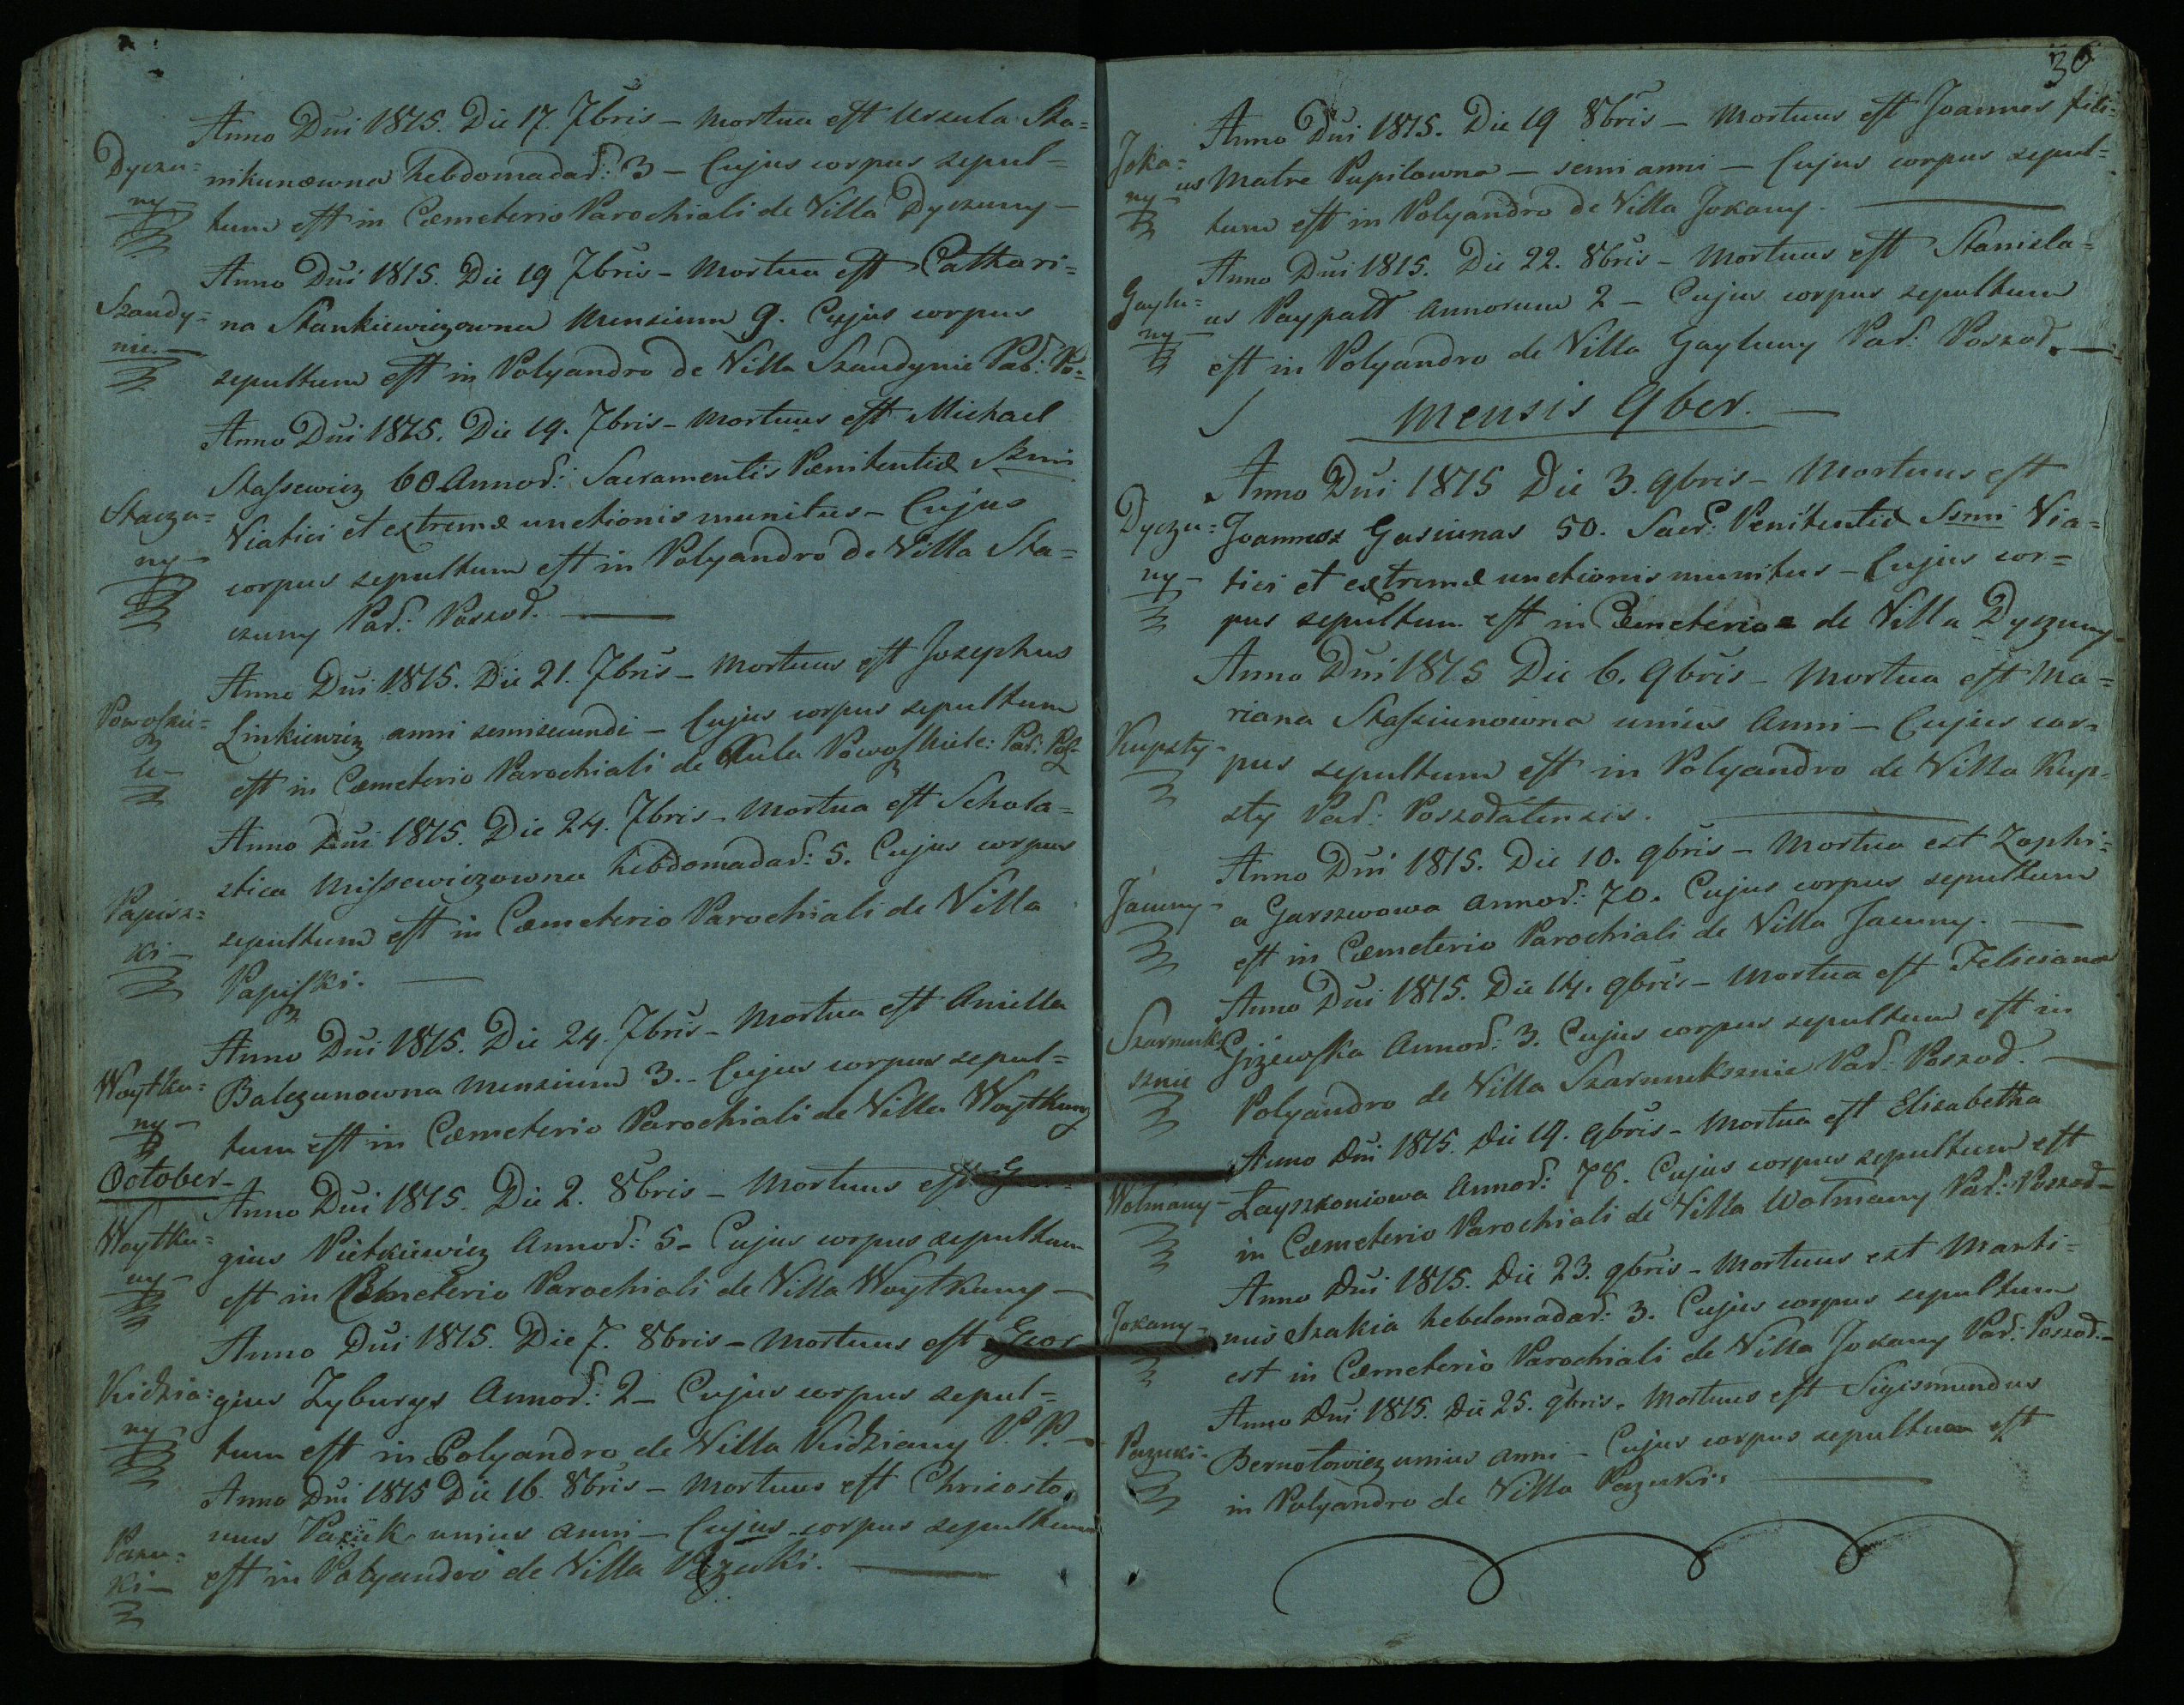 Anno Dui 1815. Die 17. 7bris – Mortua est Ursula Sta=
Dyczu= nikunowna hebdomadar: 3 – Cujus corpus sepul=
ny – tum est in Cæmeterio Parochiali de Villa Dyczuny –
Anno Dui 1815. Die 19 7bris – Mortua est Cathari=
Szaudy= na Stankiewiczowna Mensium 9. Cujus corpus
nie. – sepultum est in Polyandro de Villa Szaudynie Par: Po:
Anno Dui 1815. Die 19. 7bris – Mortuus est Michael
Stassewicz 60 Annor: Sacramentis Pænitentiæ Ssmi
Staczu= Viatici et extremæ unctionis munitus – Cujus
ny – corpus sepultum est in Polyandro de Villa Sta=
czuny Par: Poszod. –
Anno Dui 1815. Die 21. 7bris – Mortuus est Josephus
Powoszu= Linkiewicz anni semisecundi – Cujus corpus sepultum
le – est in Cæmeterio Parochiali de Par:
Anno Dui 1815. Die 24. 7bris – Mortua est Schola=
stica Missewiczowna hebdomadar: 5. Cujus corpus
Papisz= sepultum est in Cæmeterio Parochiali de Villa
ki – Papiszki. –
Anno Dui 1815. Die 24. 7bris – Mortua est Aniella
Woytku= Balczunowna Mensium 3. – Cujus corpus sepul=
ny – tum est in Cæmeterio Parochiali de Villa Woytkuny
October –
Anno Dui 1815. Die 2. 8bris – Mortuus est
Woytku= gius Pietkiewicz Annor: 5 – Cujus corpus sepultum
ny – est in Cæmeterio Parochiali de Villa Woytkuny –
Anno Dui 1815. Die 7. 8bris – Mortuus est Geor
Kidzia= gius Zyburys Annor: 2 – Cujus corpus sepul=
ny – tum est in Polyandro de Villa Kidziany P. P. –
Anno Dui 1815 Die 16. 8bris – Mortuus est Chrisosto
mus Pazuk unius anni – Cujus corpus sepultum
Pazu= ki – est in Polyandro de Villa Pazuki. –
36
Anno Dui 1815. Die 19 8bris – Mortuus est Joannes fili=
Joka= us Matre Pupilowna – semi anni – Cujus corpus sepul=
ny – tum est in Polyandro de Villa Jokany. –
Anno Dui 1815. Die 22. 8bris – Mortuus est Stanisla=
Gaylu= us Paypatt Annorum 2 – Cujus corpus sepultum
ny – est in Polyandro de Villa Gayluny Par: Poszod. –
Mensis 9ber. –
Anno Dui 1815 Die 3. 9bris – Mortuus est
Dyczu= Joannes Gasiunas 50. Sacr: Penitentiæ Ssmi Via=
ny – tici et extremæ unctionis munitus – Cujus cor=
pus sepultum est in Cæmeterio de Villa Dyczuny
Anno Dui 1815 Die 6. 9bris – Mortua est Ma=
riana Stasziunowna unius Anni – Cujus cor=
Kupsty – pus sepultum est in Polyandro de Villa Kup=
sty Par: Poszodatensis. –
Anno Dui 1815. Die 10. 9bris – Mortua est Zophi=
Jauny – a Garszwowa Annor: 70. Cujus corpus sepultum
est in Cæmeterio Parochiali de Villa Jauny. –
Anno Dui 1815. Die 14. 9bris – Mortua est Feliciana
Szarmuk= Giżewska Annor: 3. Cujus corpus sepultum est in
sznie Polyandro de Villa Szarmuksznie Par: Poszod. –
Anno Dui 1815. Die 19. 9bris – Mortua est Elisabetha
Wolmany – Layszkoniowa Annor: 78. Cujus corpus sepultum est
in Cæmeterio Parochiali de Villa Wolmany Par: Poszod –
Anno Dui 1815. Die 23. 9bris – Mortuus est Marti=
Jokany – nus Szakia hebdomadar: 3. Cujus corpus sepultum
est in Cæmeterio Parochiali de Villa Jokany Par: Poszod: –
Anno Dui 1815. Die 25. 9bris. Mortuus est Sigismundus
Pazuki – Bernotowicz unius anni – Cujus corpus sepultum est
in Polyandro de Villa Pazuki. –